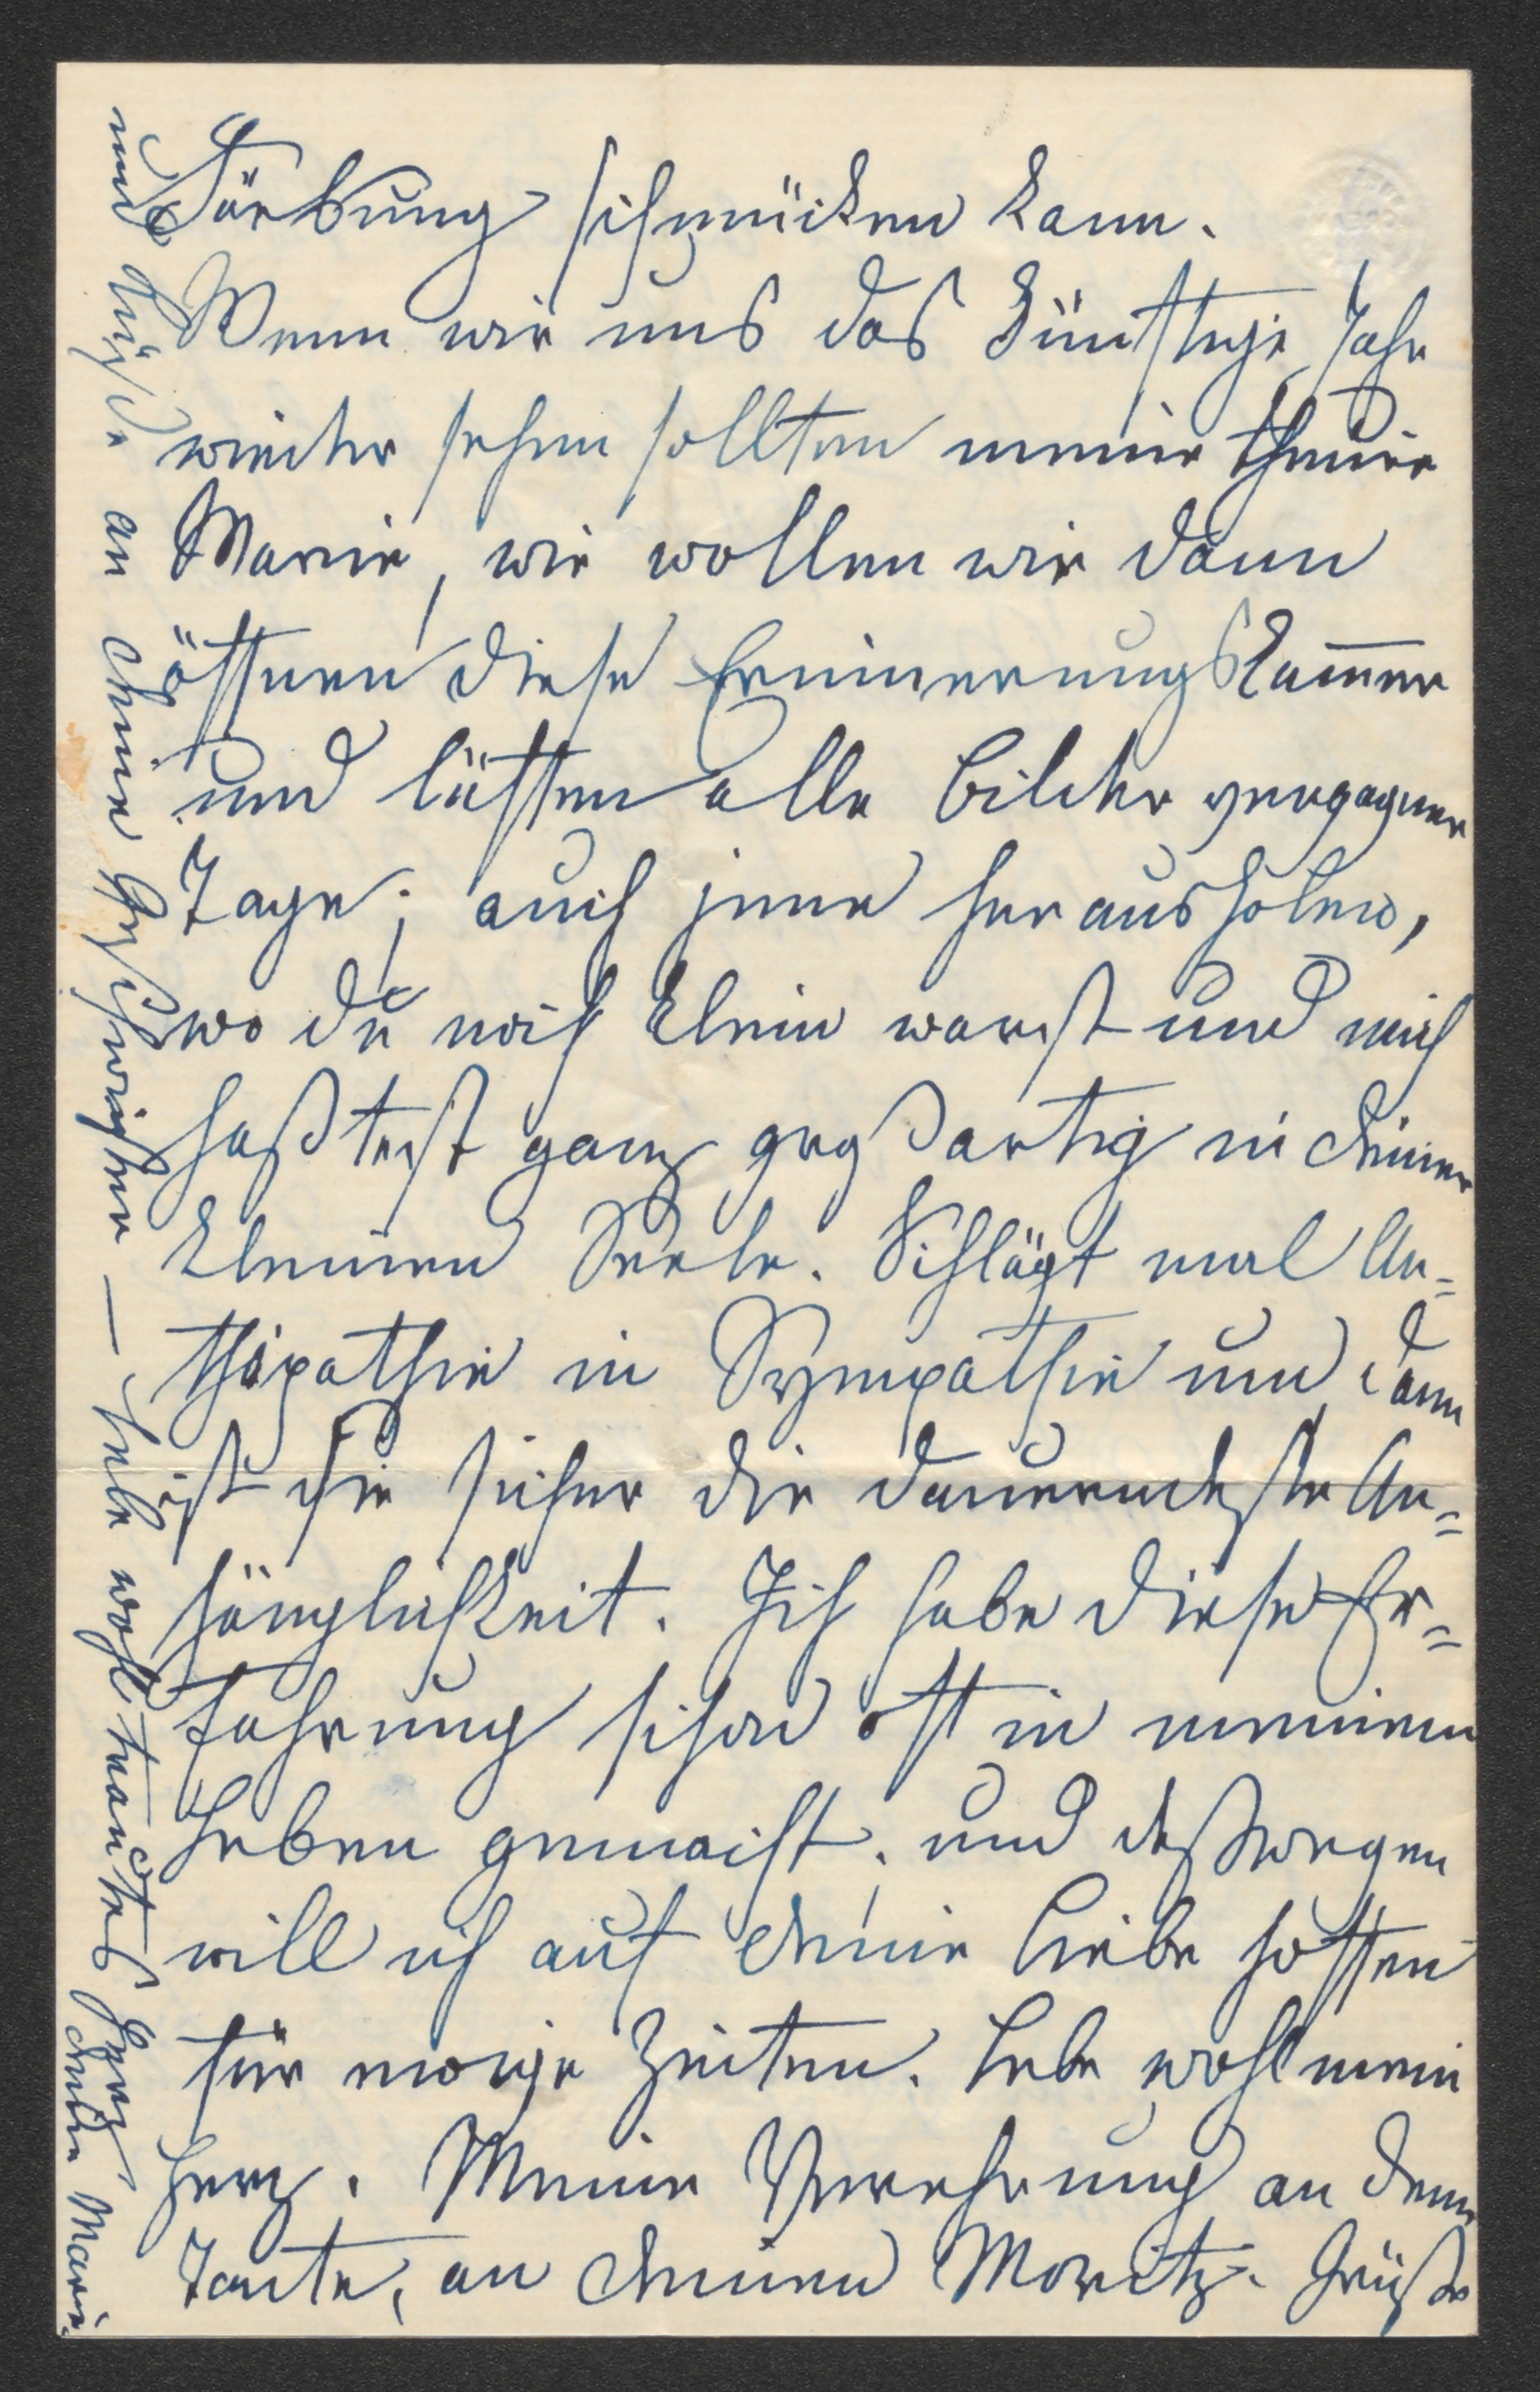 Färbung schmücken kann.
Wenn wir uns das künftige Jahr
wieder sehen sollten meine theure
Marie, wie wollen wir dann
öffnen diese Erinnerungskam̅er
und lüften alle Bilder vergagner
Tage; auch jene herausholen,
wo du noch klein warst und mich
haßtest ganz großartig in deiner
kleinen Seele. Schlägt mal An=
thipathie in Sympathie um, dann
ist sie sicher die dauerndste An=
hänglichkeit. Ich habe diese Er=
fahrung schon oft in meinem
Leben gemacht, und deßwegen
will ich auf deine Liebe hoffen
für ewige Zeiten. Lebe wohl mein
Herz. Meine Verehrung an deine
Tante, an deinen Moritz. Grüße
und Küße an deine Geschwister — Lebe wohl trautes Herz
deine Marie.